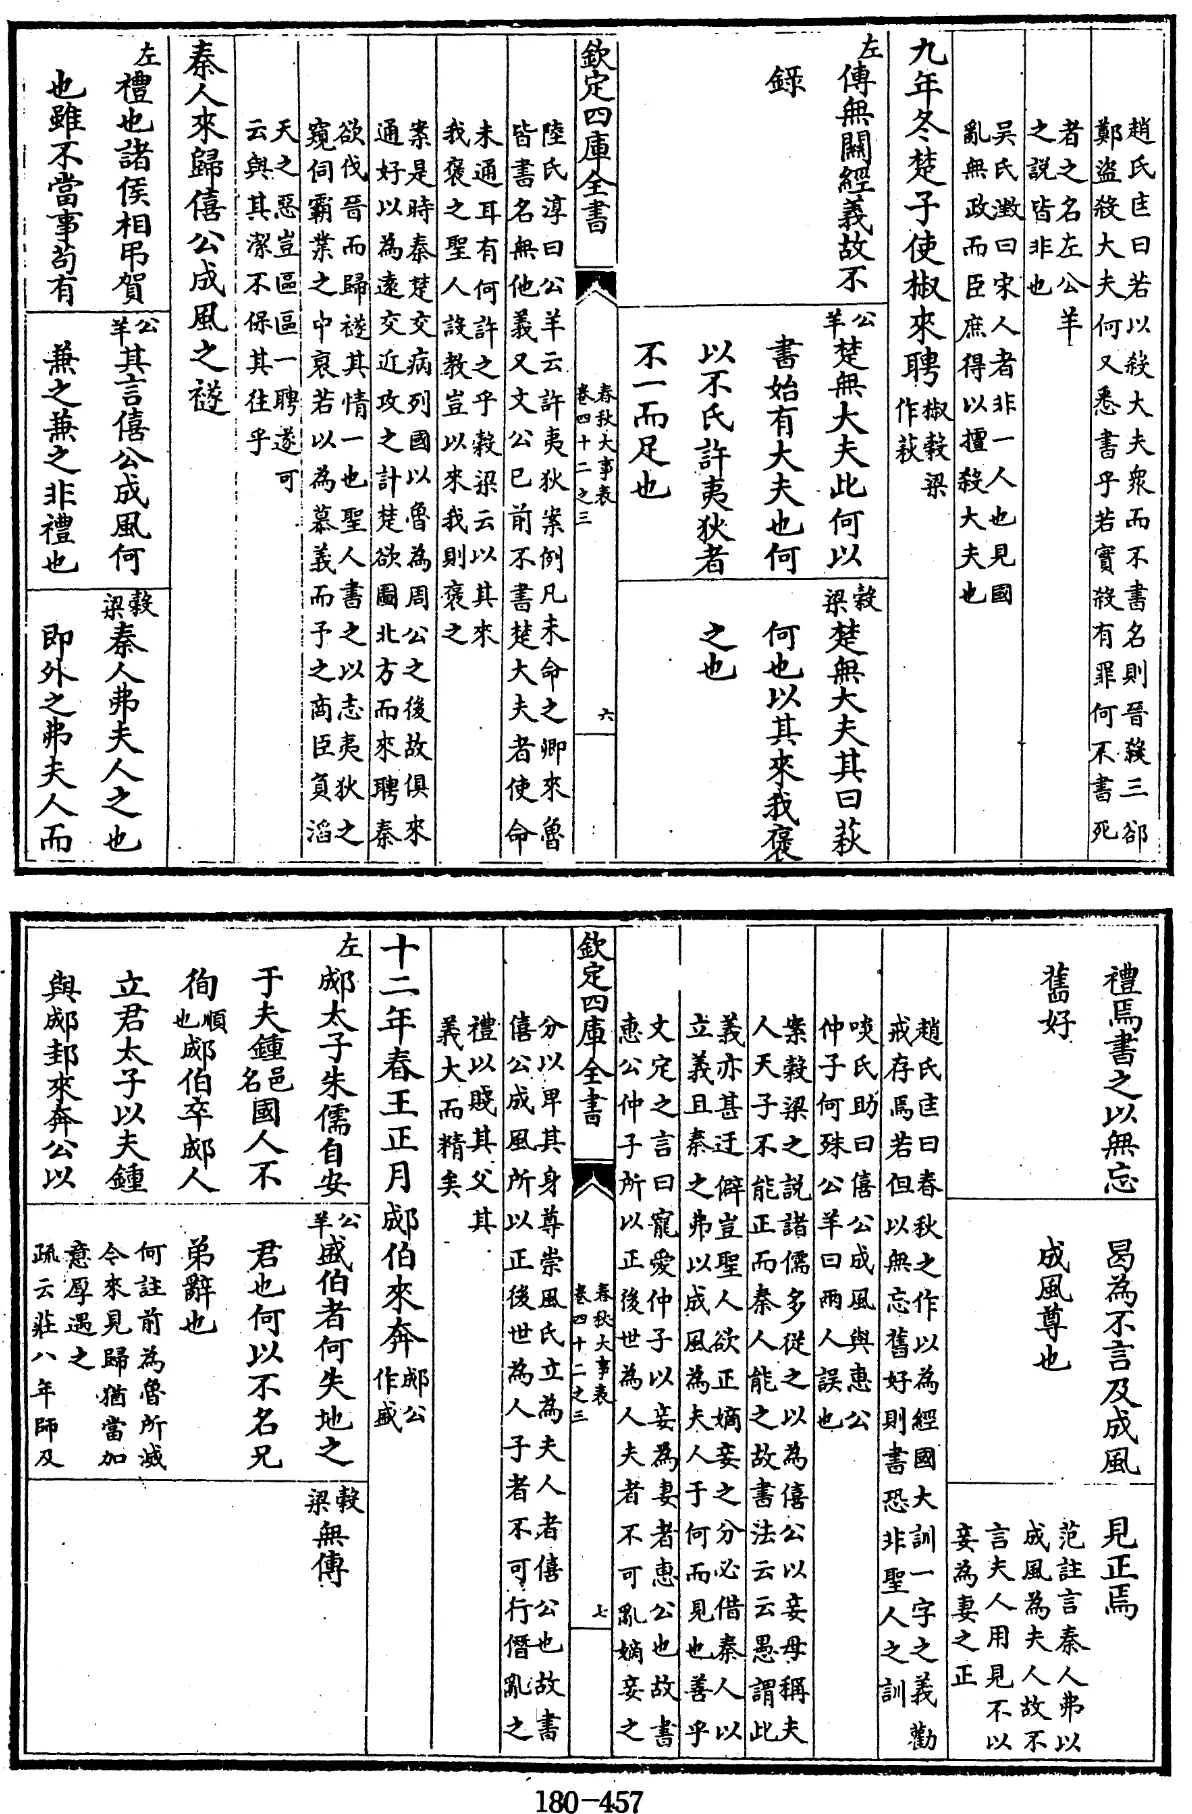 趙氏匡曰若以殺大夫衆而不書名則晉殺三郤
鄭盜殺大夫何又悉書乎若實殺有罪何不書死
者之名左公羊
之說皆非也
吳氏澂曰宋人者非一人也見國
亂無政而臣庶得以擅殺大夫也
九年冬楚子使椒來聘椒穀梁作萩
左傳無闗經義故不
錄
公羊楚無大夫此何以
書始有大夫也何
以不氏許夷狄者
不一而足也
穀梁楚無大夫其曰萩
何也以其來我褒
之也
欽定四庫全書
春秋大事表
卷四十二之三
六
陸氏淳曰公羊云許夷狄案例凡未命之卿來魯
皆書名無他義又文公已前不書楚大夫者使命
未通耳有何許之乎穀梁云以其來
我褒之聖人設教豈以來我則褒之
案是時秦楚交病列國以魯為周公之後故俱來
通好以為遠交近攻之計楚欲圖北方而來聘秦
欲伐晉而歸襚其情一也聖人書之以志夷狄之
窺伺霸業之中衰若以為慕義而予之商臣負滔
天之惡豈區區一聘遂可
云與其潔不保其往乎
秦人來歸僖公成風之襚
左禮也諸侯相弔賀
也雖不當事苟有
公羊其言僖公成風何
兼之兼之非禮也
穀梁秦人弗夫人之也
即外之弗夫人而
禮焉書之以無忘
舊好
曷為不言及成風
成風尊也
見正焉
范註言秦人弗以
成風為夫人故不
言夫人用見不以
妾為妻之正
趙氏匡曰春秋之作以為經國大訓一字之義勸
戒存焉若但以無忘舊好則書恐非聖人之訓
啖氏助曰僖公成風與惠公
仲子何殊公羊曰兩人誤也
案穀梁之説諸儒多從之以為僖公以妾母稱夫
人天子不能正而秦人能之故書法云云愚謂此
義亦甚迂僻豈聖人欲正嫡妾之分必借秦人以
立義且秦之弗以成風為夫人于何而見也善乎
文定之言曰寵愛仲子以妾為妻者惠公也故書
惠公仲子所以正後世為人夫者不可亂嫡妾之
欽定四庫全書
春秋大事表
卷四十二之三
七
分以卑其身尊崇風氏立為夫人者僖公也故書
僖公成風所以正後世為人子者不可行僭亂之
禮以賤其父其
義大而精矣
十二年春王正月郕伯來奔郕公作盛
左郕太子朱儒自安
于夫鍾邑名國人不
徇順也郕伯卒郕人
立君太子以夫鍾
與郕邽來奔公以
公羊盛伯者何失地之
君也何以不名兄
弟辭也
何註前為魯所滅
今來見歸猶當加
意厚遇之
疏云莊八年師及
穀梁無傳
180-457